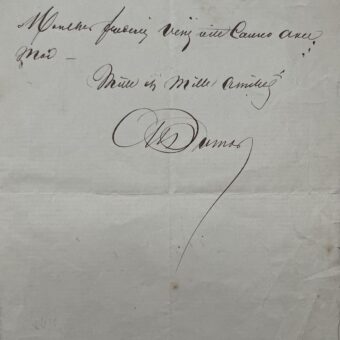 Mon cher frédéric venez vite causer avec
Moi –
Mille et Mille amitiés
Al Dumas